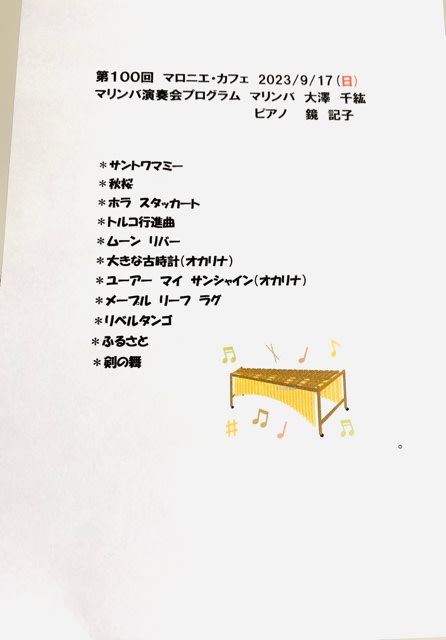 第100回 マロニエ・カフェ 2023/9/17(日)
マリンバ演奏会プログラム マリンバ 大澤 千紘
ピアノ 鏡 記子
＊サントワマミー
＊秋桜
＊ホラ スタッカート
＊トルコ行進曲
＊ムーン リバー
＊大きな古時計(オカリナ)
＊ユーアー マイ サンシャイン(オカリナ)
＊メープル リーフ ラグ
＊リベルタンゴ
＊ふるさと
＊剣の舞
。